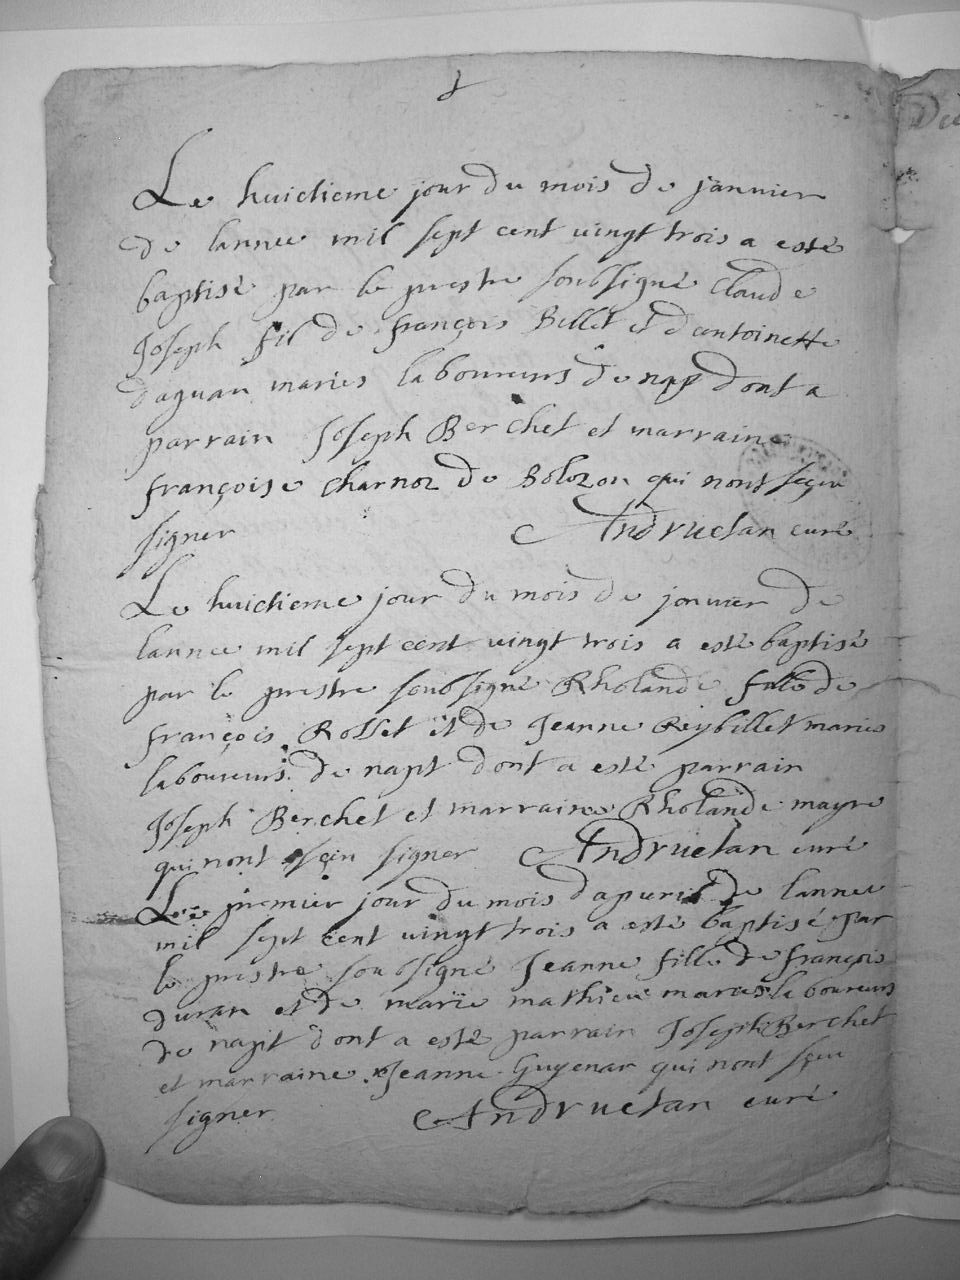 Le huictieme jour du mois de janvier
de lannee mil sept cent vingt trois a esté
baptisé par le prestre soubsigné Claude
Joseph fil de françois Billet et d'antoinette
daguan maries laboureurs de napt dont a
parrain Joseph Berchet et marraine
françoise Charnoz de Bolozon qui nont sçeu
signer Andruetan curé
Le huictieme jour du mois de janvier de
lannee mil sept cent vingt trois a esté baptisé
par le prestre soubsigné Rholande fille de
françois Rosset et de Jeanne Reybillet maries
laboureurs de napt dont a esté parrain
Joseph Berchet et marraine Rholande mayre
qui nont sçeu signer Andruetan curé
Le premier jour du mois dapuril de lannee
mil sept cent vingt trois a esté baptisé par
le prestre soubsigné Jeanne fille de françois
duran et de marie mathieu maries laboureurs
de napt dont a esté parrain Joseph Berchet
et marraine Jeanne Guyenar qui nont sçeu
signer Andruetan curé